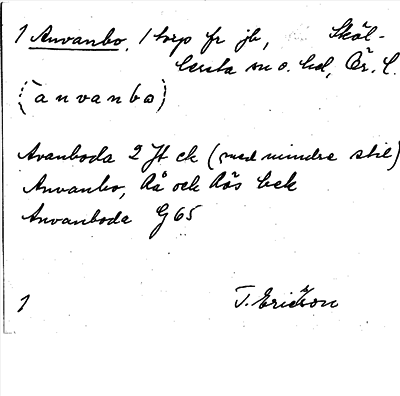 1 Anvanbo, 1 torp fr jb, Sköl-
lersta sn o. hd, Ör. l.
(anvanbo)
Avanboda 2 Jt ck (med mindre stil)
Anvanbo, Rå och Rös bek
Anvanboda G 65
1 T. Ericson